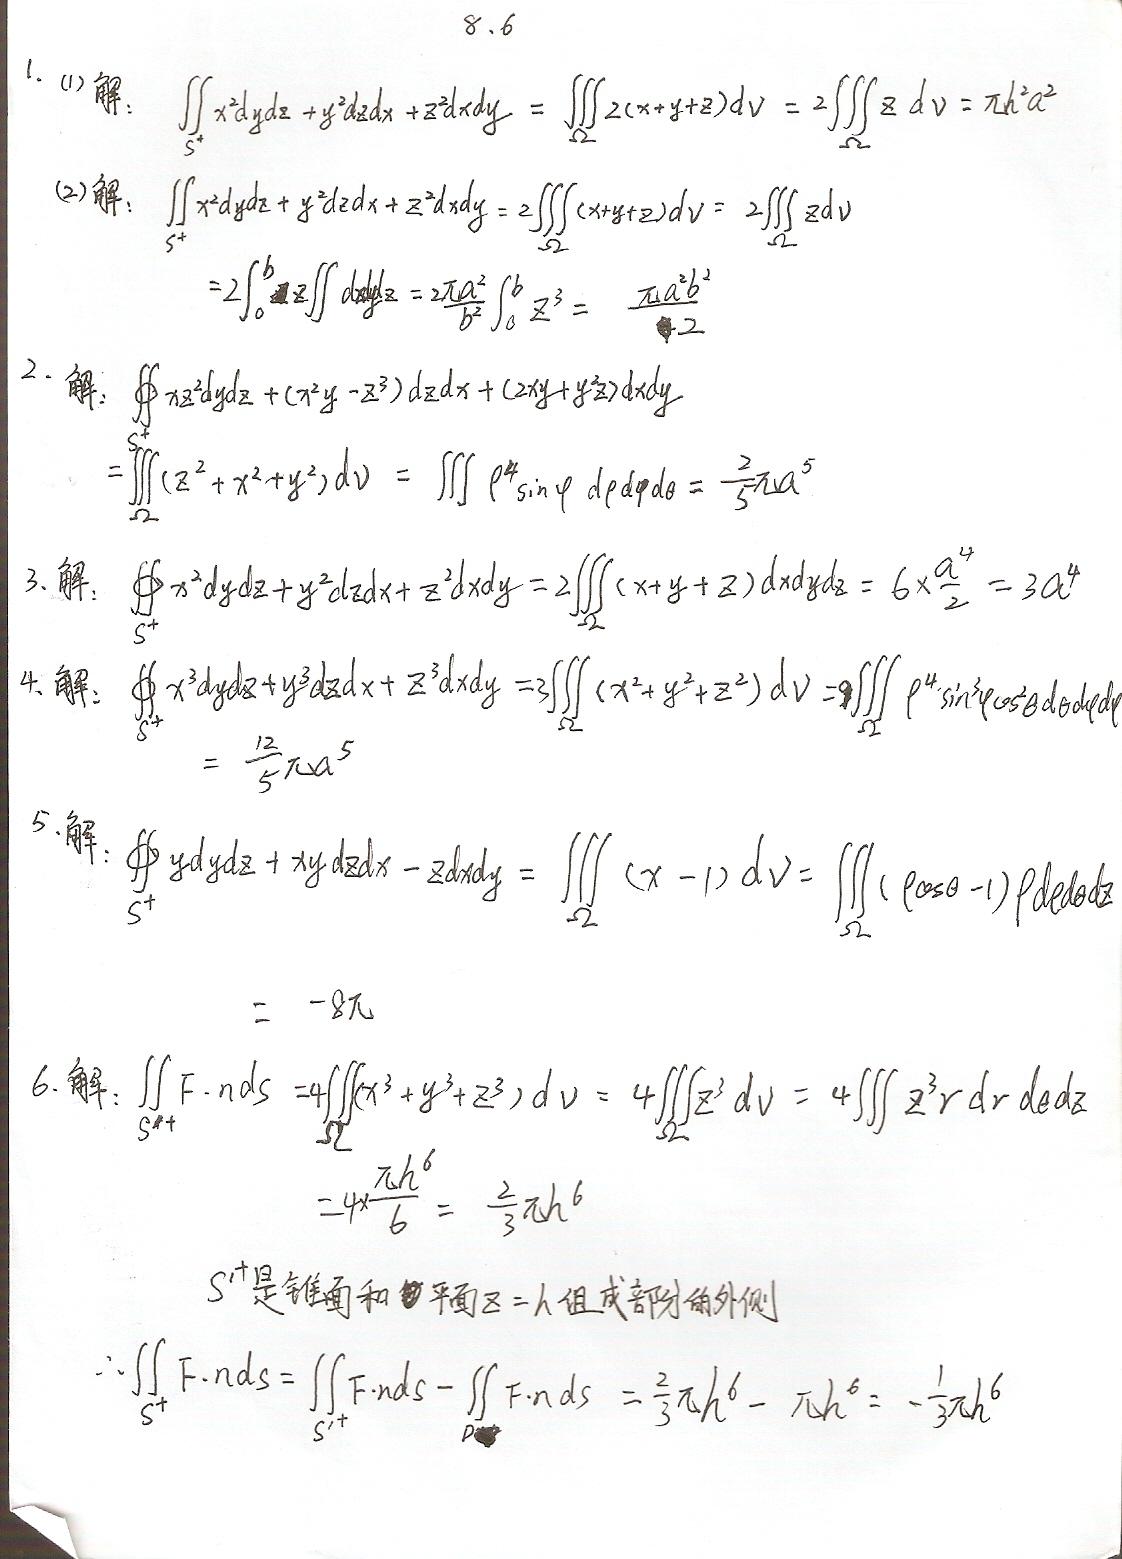 8.6
1. (1) 解: ∬_{S⁺} x²dydz + y²dzdx + z²dxdy = ∭_Ω 2(x+y+z)dv = 2∭_Ω z dv = πh²a²
(2) 解: ∬_{S⁺} x²dydz + y²dzdx + z²dxdy = 2∭_Ω (x+y+z)dv = 2∭_Ω zdv
= 2∫₀ᵇ z∬ dxdydz = 2πa²/b² ∫₀ᵇ z³ = πa²b²/2
2. 解: ∯_{S⁺} xz²dydz + (x²y - z³)dzdx + (2xy + y²z)dxdy
= ∭_Ω (z² + x² + y²)dv = ∭ ρ⁴sinφ dρdφdθ = 2/5 πa⁵
3. 解: ∯_{S⁺} x²dydz + y²dzdx + z²dxdy = 2∭_Ω (x+y+z)dxdydz = 6×a⁴/2 = 3a⁴
4. 解: ∯_{S⁺} x³dydz + y³dzdx + z³dxdy = 3∭_Ω (x²+y²+z²)dv = 9∭_Ω ρ⁴sin³φcos²θdθdφdρ
= 12/5 πa⁵
5. 解: ∯_{S⁺} ydydz + xydzdx - zdxdy = ∭_Ω (x-1)dv = ∭_Ω (ρcosθ-1)ρdρdθdz
= -8π
6. 解: ∬_{S'⁺} F·nds = 4∭_Ω (x³+y³+z³)dv = 4∭_Ω z³dv = 4∭ z³rdrdθdz
= 4×πh⁶/6 = 2/3 πh⁶
S'⁺是锥面和平面z=h组成部分的外侧
∴∬_{S⁺} F·nds = ∬_{S'⁺} F·nds - ∬_D F·nds = 2/3 πh⁶ - πh⁶ = -1/3 πh⁶